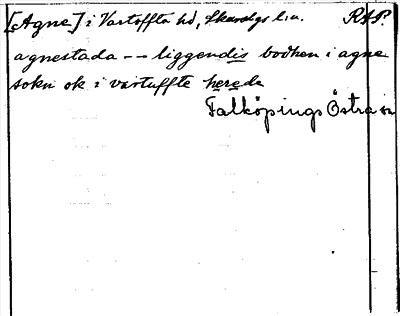 [Agne] i Vartoffta hd, Skarabgs län. RAP.
agnestada -- liggendis bodhen i agne
sokn ok i vartuffte herede
Falköpings Östra sn